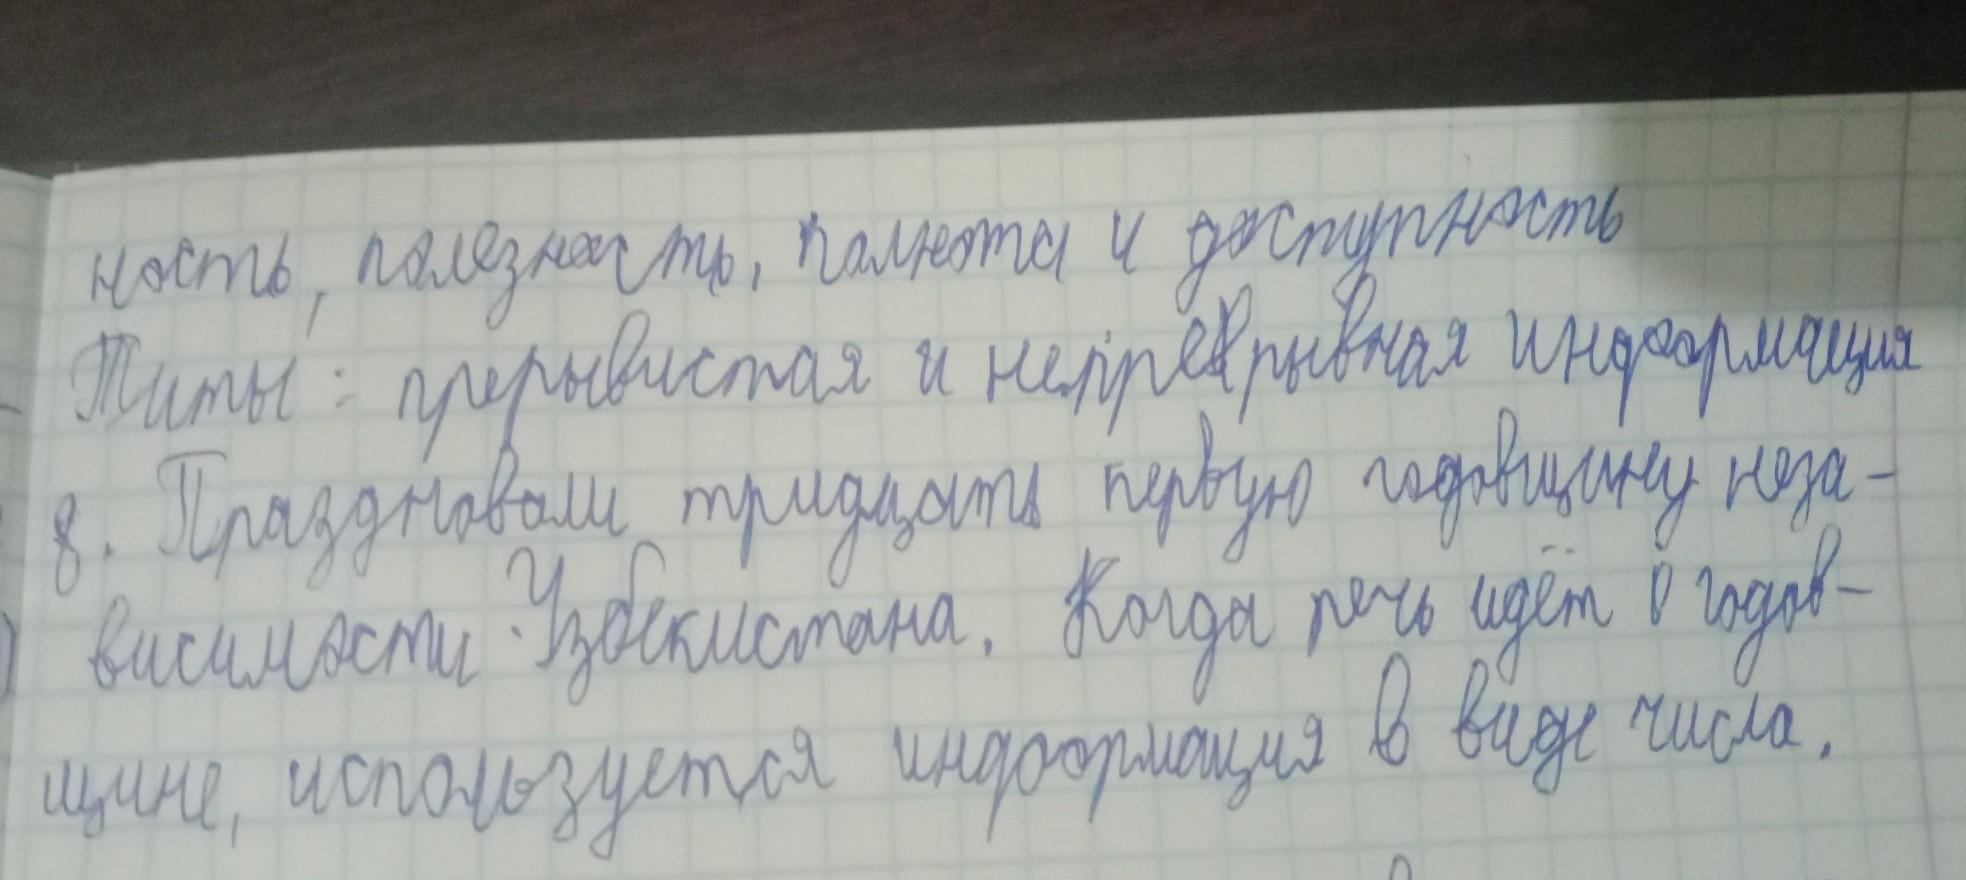 ность, полезность, полнота и доступность
Типы: прерывистая и непрерывная информация
8. Праздновали тридцать первую годовщину неза-
висимости Узбекистана. Когда речь идёт о годов-
щине, используется информация в виде числа.